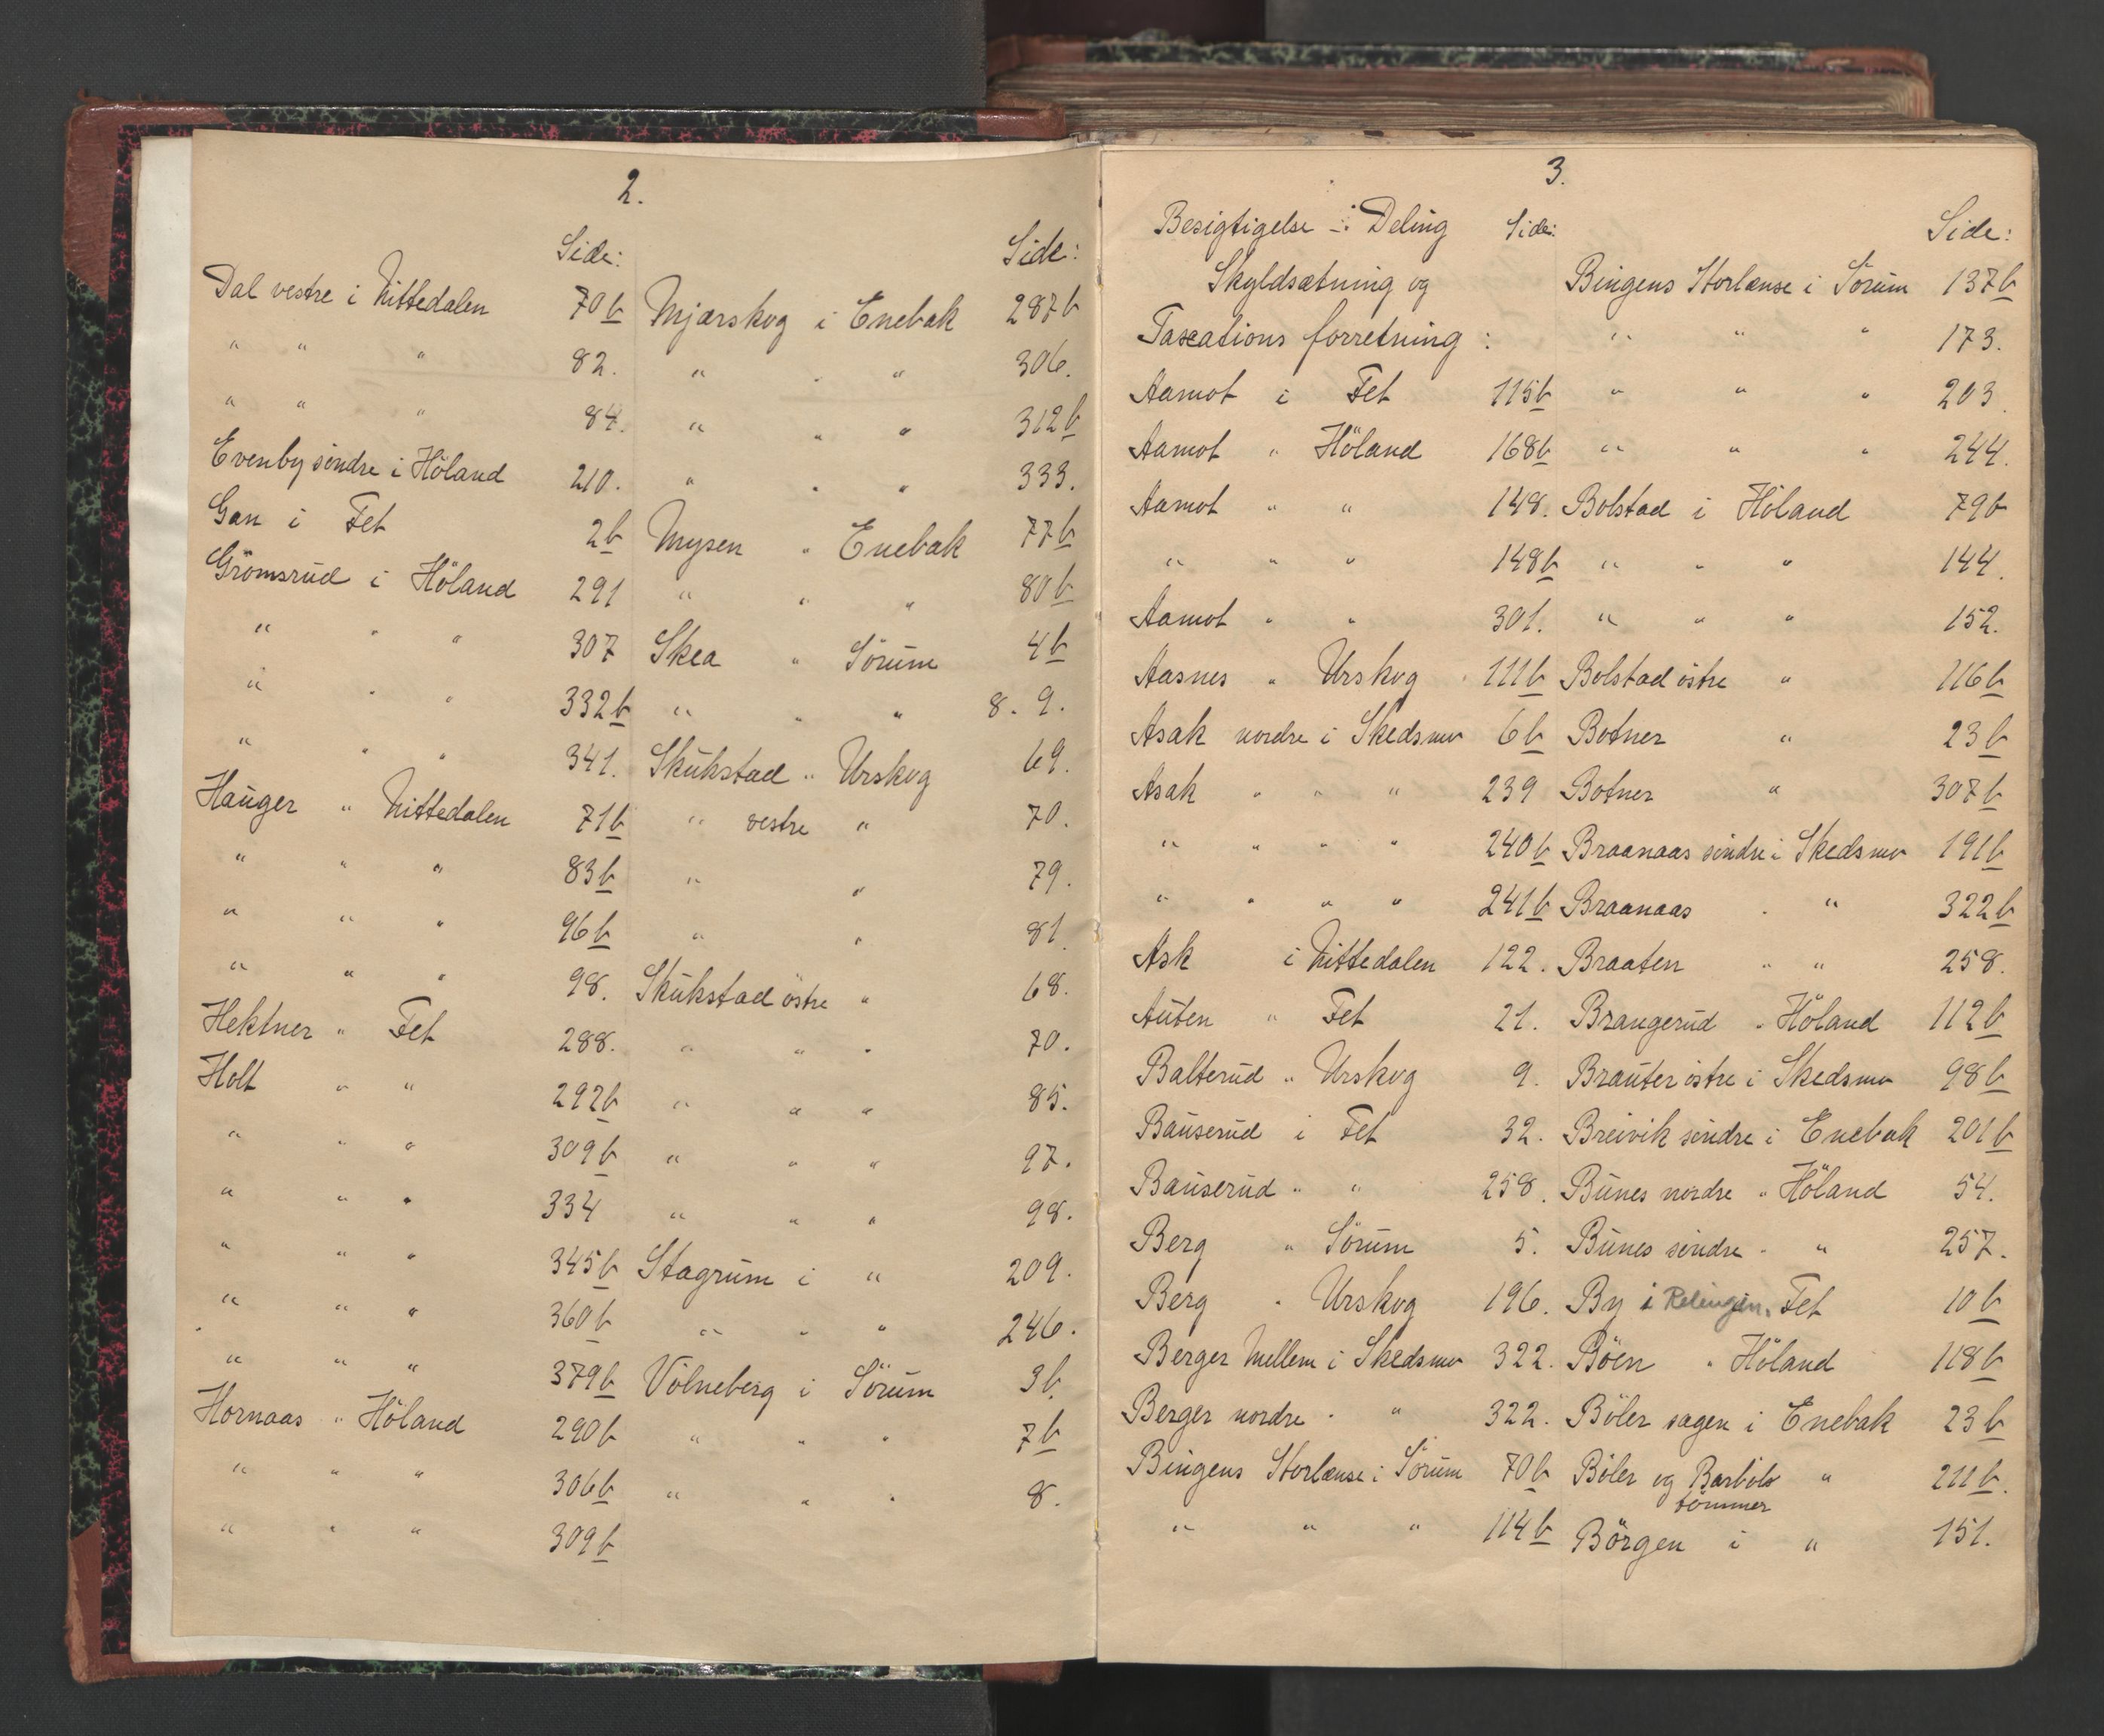 2.
Side:
Dal vestre i Nittedalen 70b
" " " 82.
" " " 84.
Evenby söndre i Höland 210.
Gan i Fet 2b
Grömsrud i Höland 291
" " " 307
" " " 332b
" " " 341.
Hauger " Nittedalen 71b
" " " 83b
" " " 96b
" " " 98.
Hektner " Fet 288.
Holt " " 292b
" " " 309b
" " " 334
" " " 345b
" " " 360b
" " " 379b
Hornaas " Höland 290b
" " " 306b
" " " 309b
Side:
Mjærskog i Enebak 287b
" " " 306.
" " " 312b
" " " 333.
Mysen " Enebak 77b
" " " 80b
Skea " Sörum 4b
" " " 8. 9.
Skukstad " Urskog 69.
" vestre " 70.
" " 79.
" " 81.
Skukstad östre " 68.
" " " 70.
" " " 85.
" " " 97.
" " " 98.
Stagrum i " 209.
" " " 246.
Völneberg i Sörum 3b.
" " " 7b
" " " 8.
3.
Besigtigelse -:- Deling Side:
Skyldsætning og
Taxations forretning:
Aamot i Fet 115b
Aamot " Höland 168b
Aamot " " 148.
" " " 148b
Aamot " " 301.
Aasnes " Urskog 111b
Asak nordre i Skedsmo 6b
Asak " " " 239
" " " " 240b
" " " " 241b
Ask i Nittedalen 122.
Auten " Fet 21.
Balterud " Urskog 9.
Bauserud i Fet 32.
Bauserud " " 258.
Berg " Sörum 5.
Berg " Urskog 196.
Berger Mellem i Skedsmo 322.
Berger nordre " " 322.
Bingens Storlænse i Sörum 70b
" " " 114b
Side:
Bingens Storlænse i Sörum 137b
" " " 173.
" " " 203.
" " " 244.
Bolstad i Höland 79b
" " " 144.
" " " 152.
Bolstad östre " 116b
Botner " 23b
Botner " 307b
Braanaas söndre i Skedsmo 191b
Braanaas " " 322b
Braaten " " 258.
Brangerud " Höland 112b
Brauter östre i Skedsmo 98b
Breivik söndre i Enebak 201b
Bunes nordre " Höland 54.
Bunes söndre " " 257.
By i Relingen. Fet 10b
Böen " Höland 118b
Böler sagen i Enebak 23b
Böler og Barböl " 211b.
tömmer
Börgen i " 151.